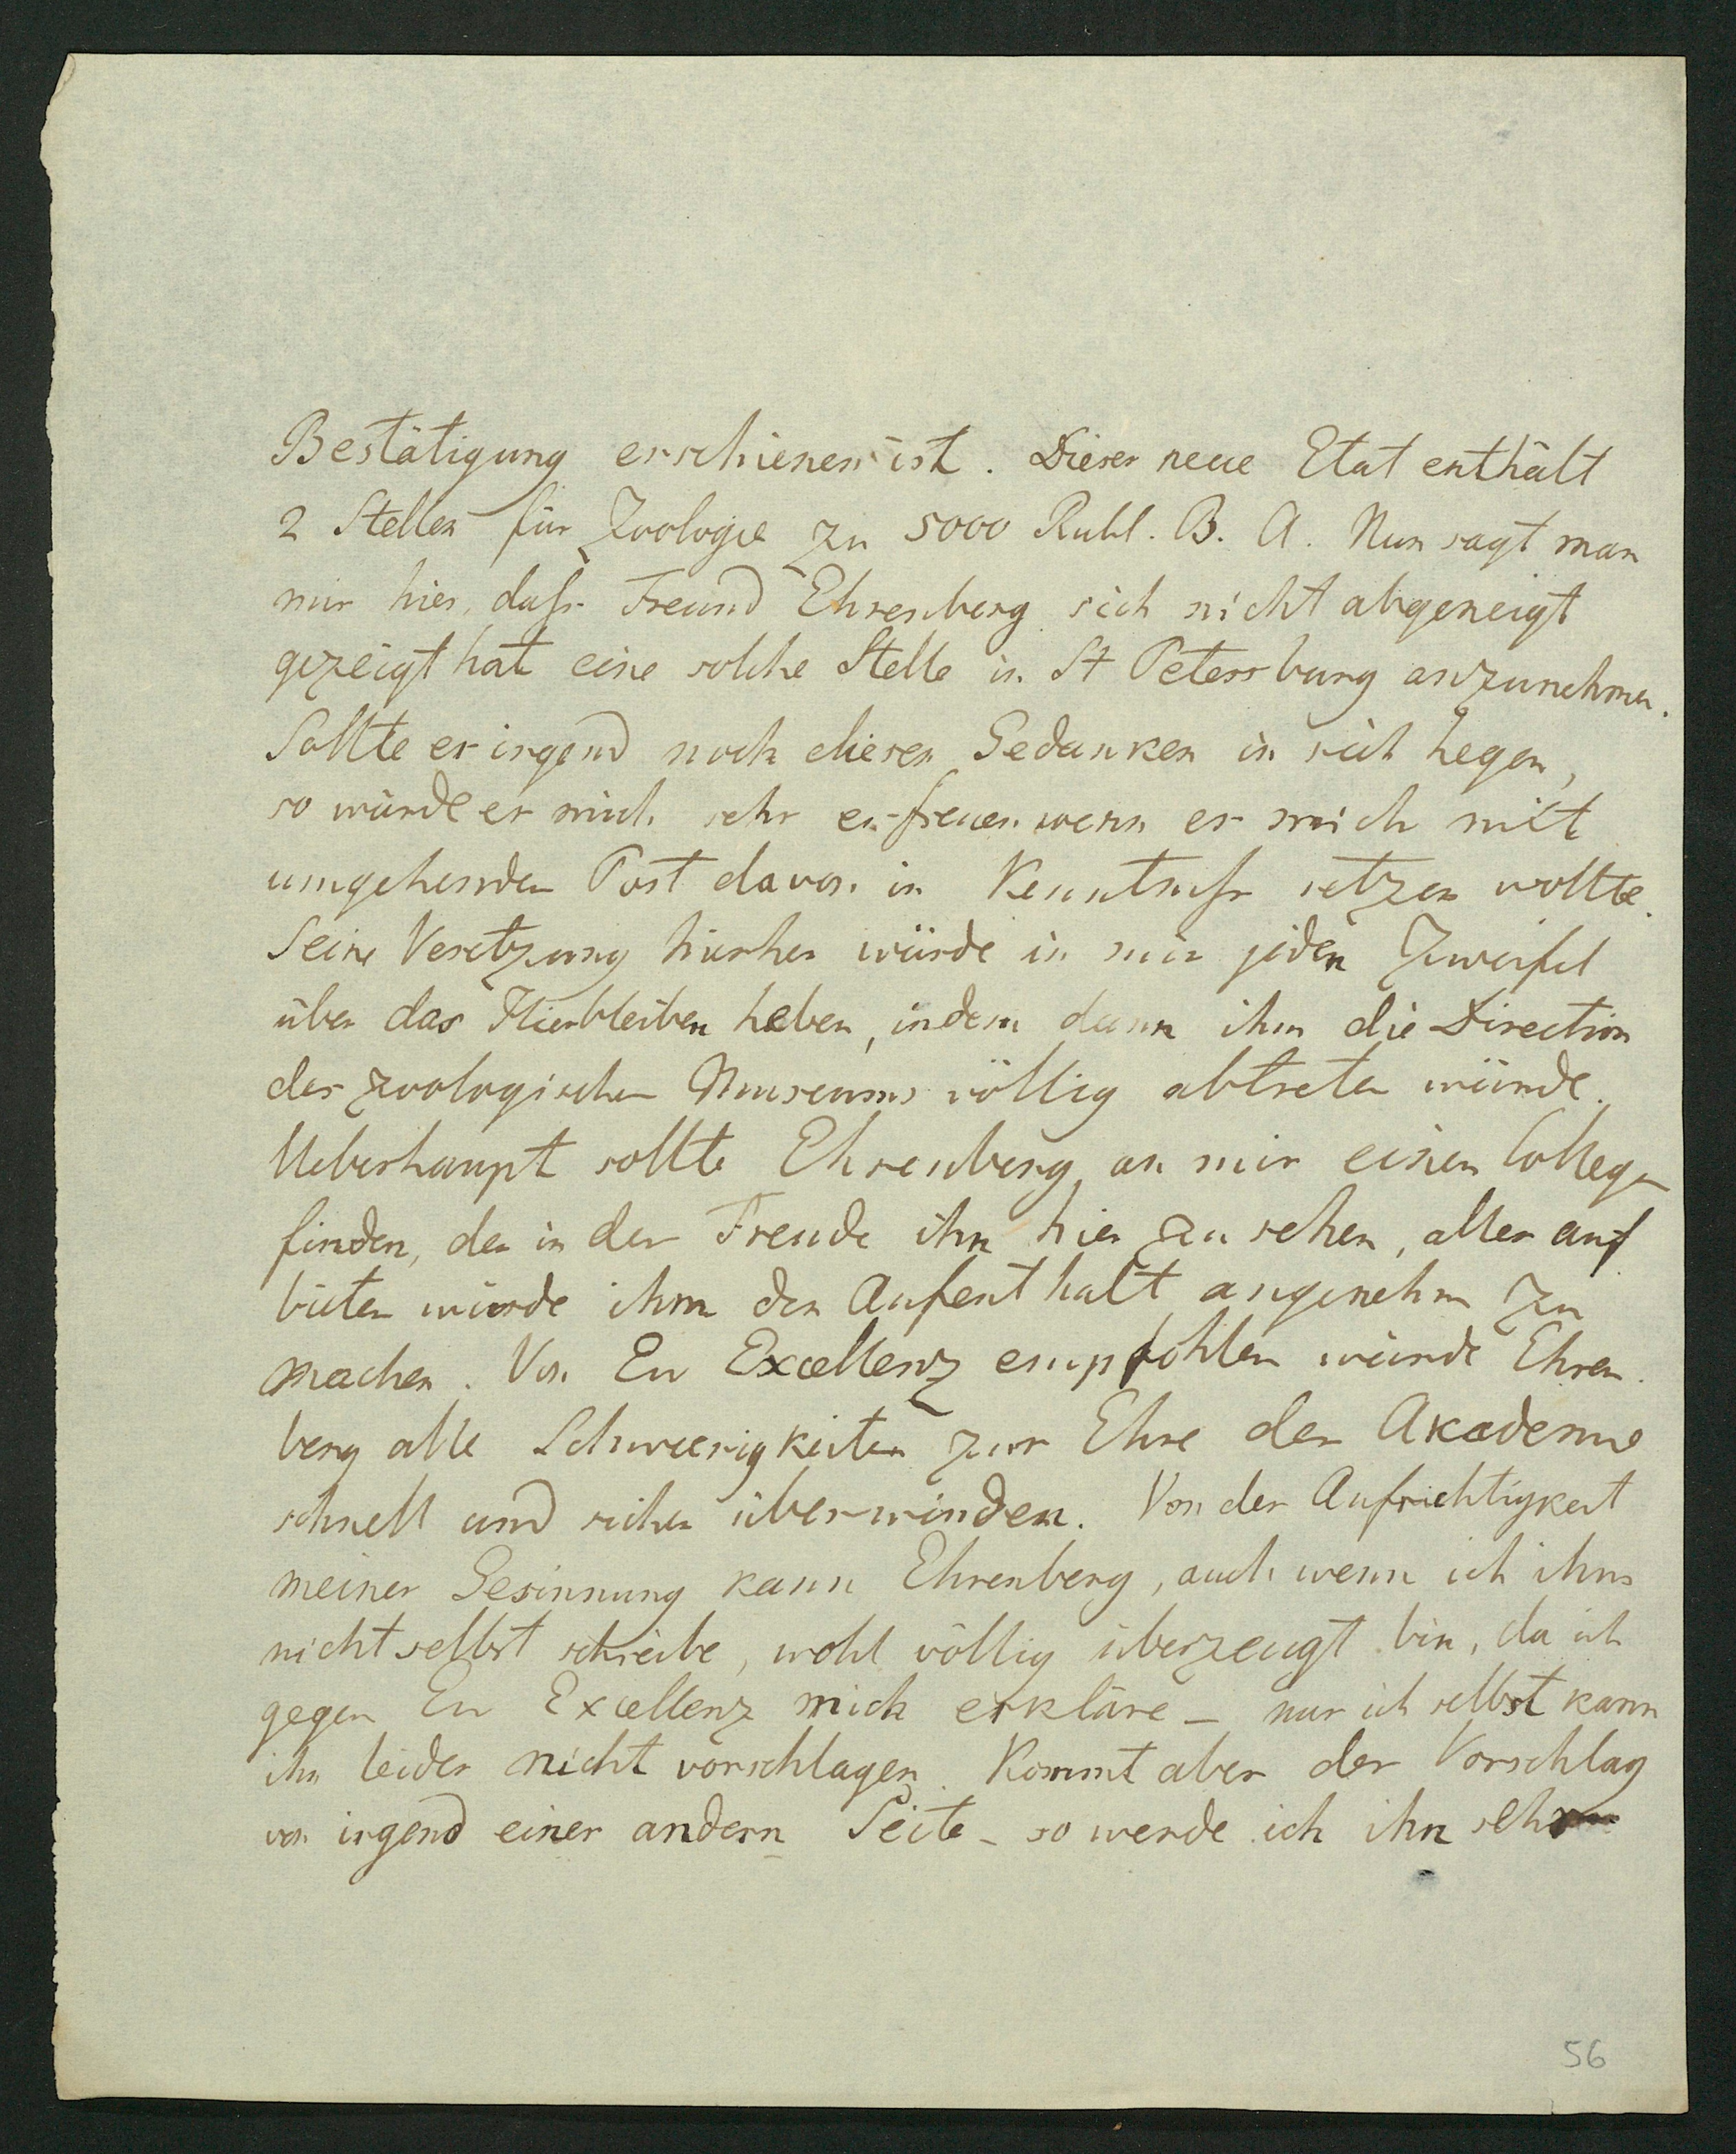 Bestätigung erschienen ist. Dieser neue Etat enthält
2 Stellen für Zoologie zu 5000 Rubl. B. A. Nun sagt man
mir hier, daſs Freund Ehrenberg sich nicht abgeneigt
gezeigt hat eine solche Stelle in St Petersburg anzunehmen.
Sollte er irgend noch diesen Gedanken in sich hegen,
so würde er mich sehr erfreuen wenn er mich mit
umgehender Post davon in Kenntniſs setzen wollte.
Seine Versetzung hierher würde in mir jeden Zweifel
über das Hierbleiben heben, indem dann ihm die Direction
des zoologischen Museums völlig abtreten würde.
Ueberhaupt sollte Ehrenberg an mir einen Collegen
finden, der in der Freude ihn hier zu sehen, alles auf
bieten würde ihm den Aufenthalt angenehm zu
machen. Von Ew Excellenz empfohlen würde Ehren
berg alle Schwierigkeiten zur Ehre der Akademie
schnell und sicher überwinden. Von der Aufrichtigkeit
meiner Gesinnung kann Ehrenberg, auch wenn ich ihm
nicht selbst schreibe, wohl völlig überzeugt bin, da ich
gegen Ew Excellenz mich erkläre – nur ich selbst kann
ihn leider nicht vorschlagen. Kommt aber der Vorschlag
von irgend einer andern Seite – so werde ich ihn sehr
56